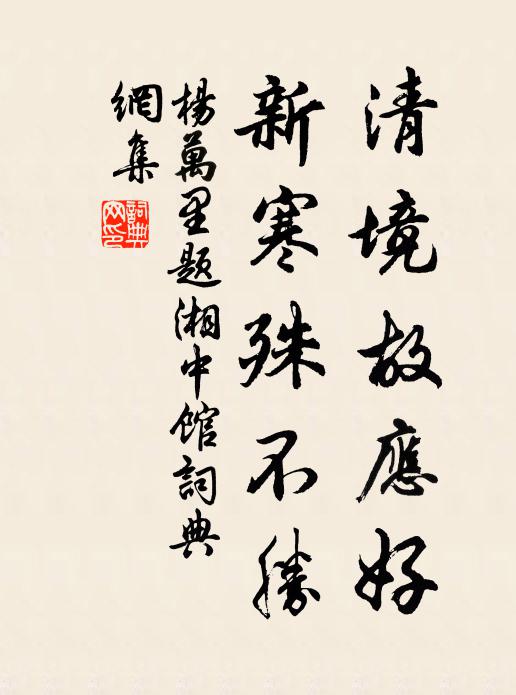 清境故應好
新寒殊不勝
楊萬里題湘中館詞典
網集
詞典网印